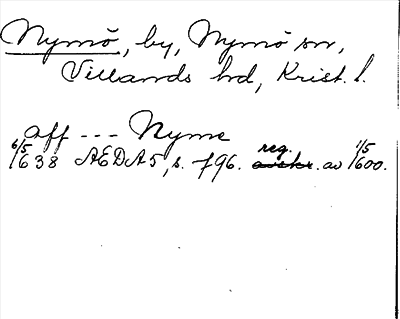 Nymö, by, Nymö sn,
Villands hd, Krist. l.
aff --- Nyme
6/5 1638 AEDA5, s. 796. reg. avskr. av 1/5 1600.